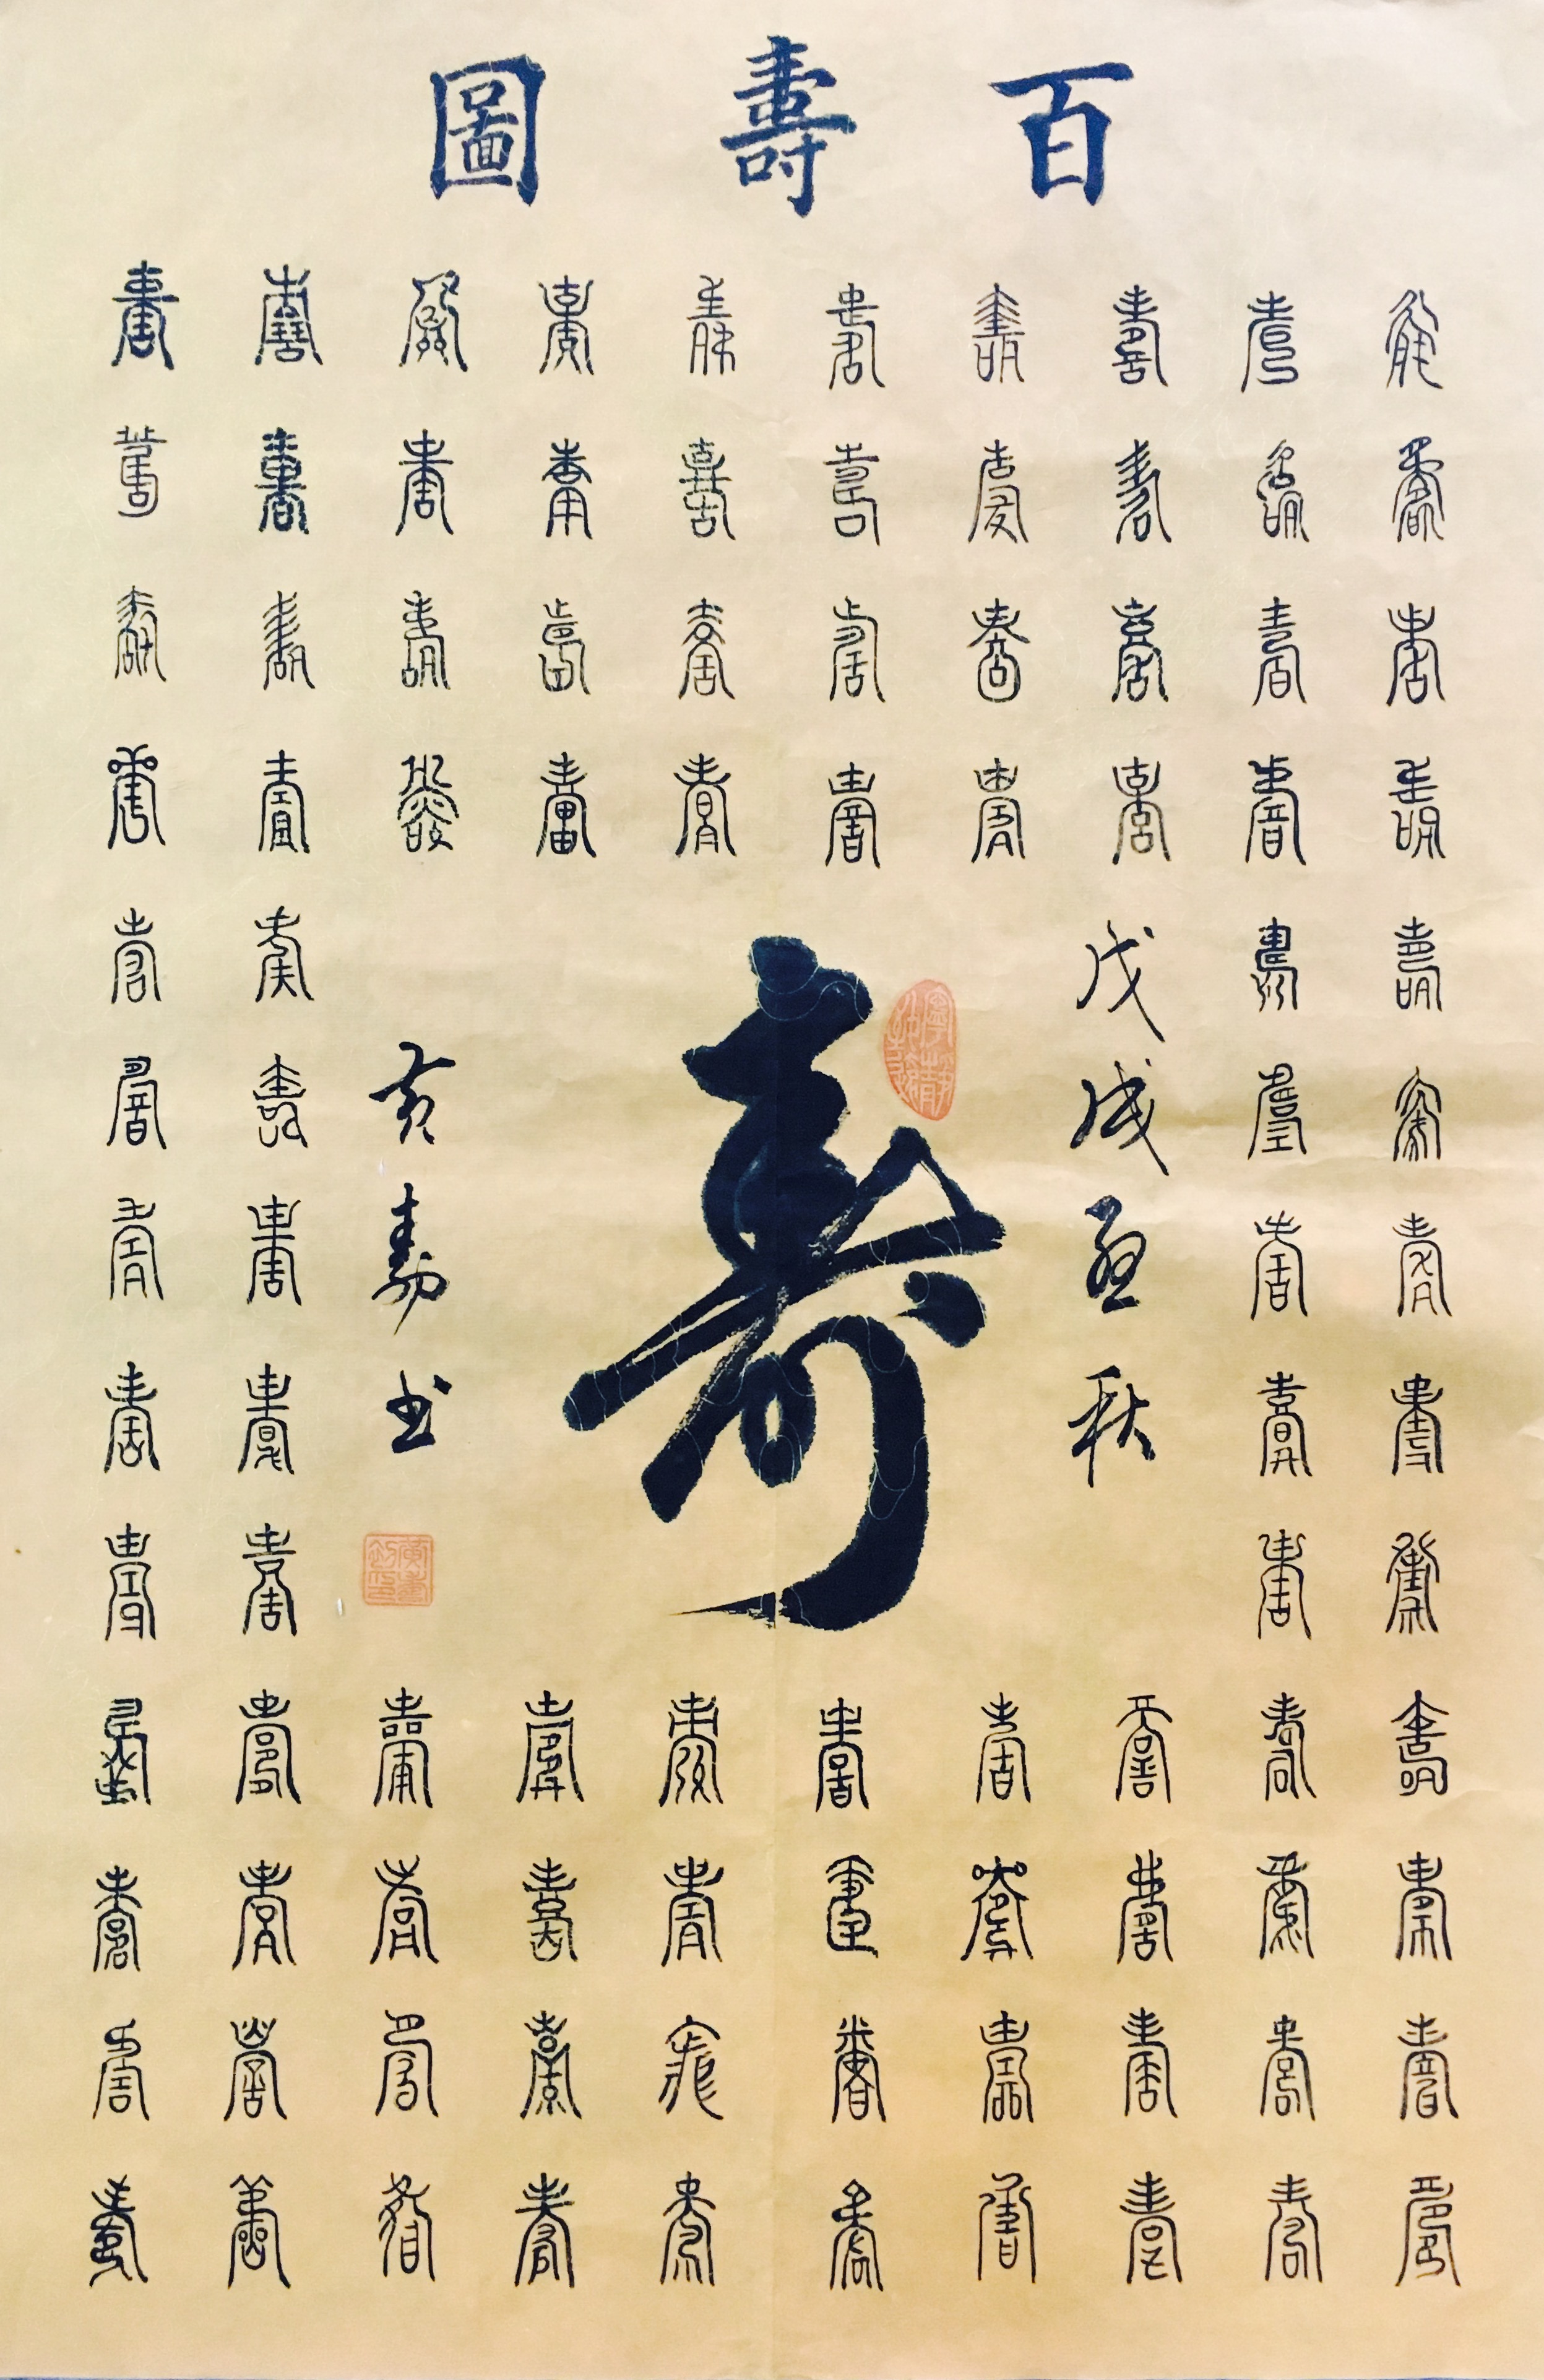 百壽圖
壽壽壽壽壽壽壽壽壽壽
壽壽壽壽壽壽壽壽壽壽
壽壽壽壽壽壽壽壽壽壽
壽壽壽壽壽壽壽壽壽壽
壽壽壽壽
壽壽壽壽
壽壽壽壽
壽壽壽壽
壽壽壽壽
壽壽壽壽壽壽壽壽壽壽
壽壽壽壽壽壽壽壽壽壽
壽壽壽壽壽壽壽壽壽壽
壽壽壽壽壽壽壽壽壽壽
戊戌孟秋
寿
黄 书